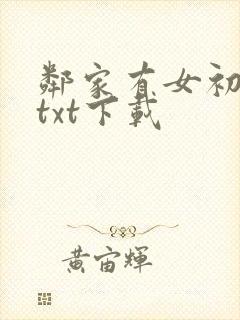 鄰家有女初
txt下載
黃宙輝